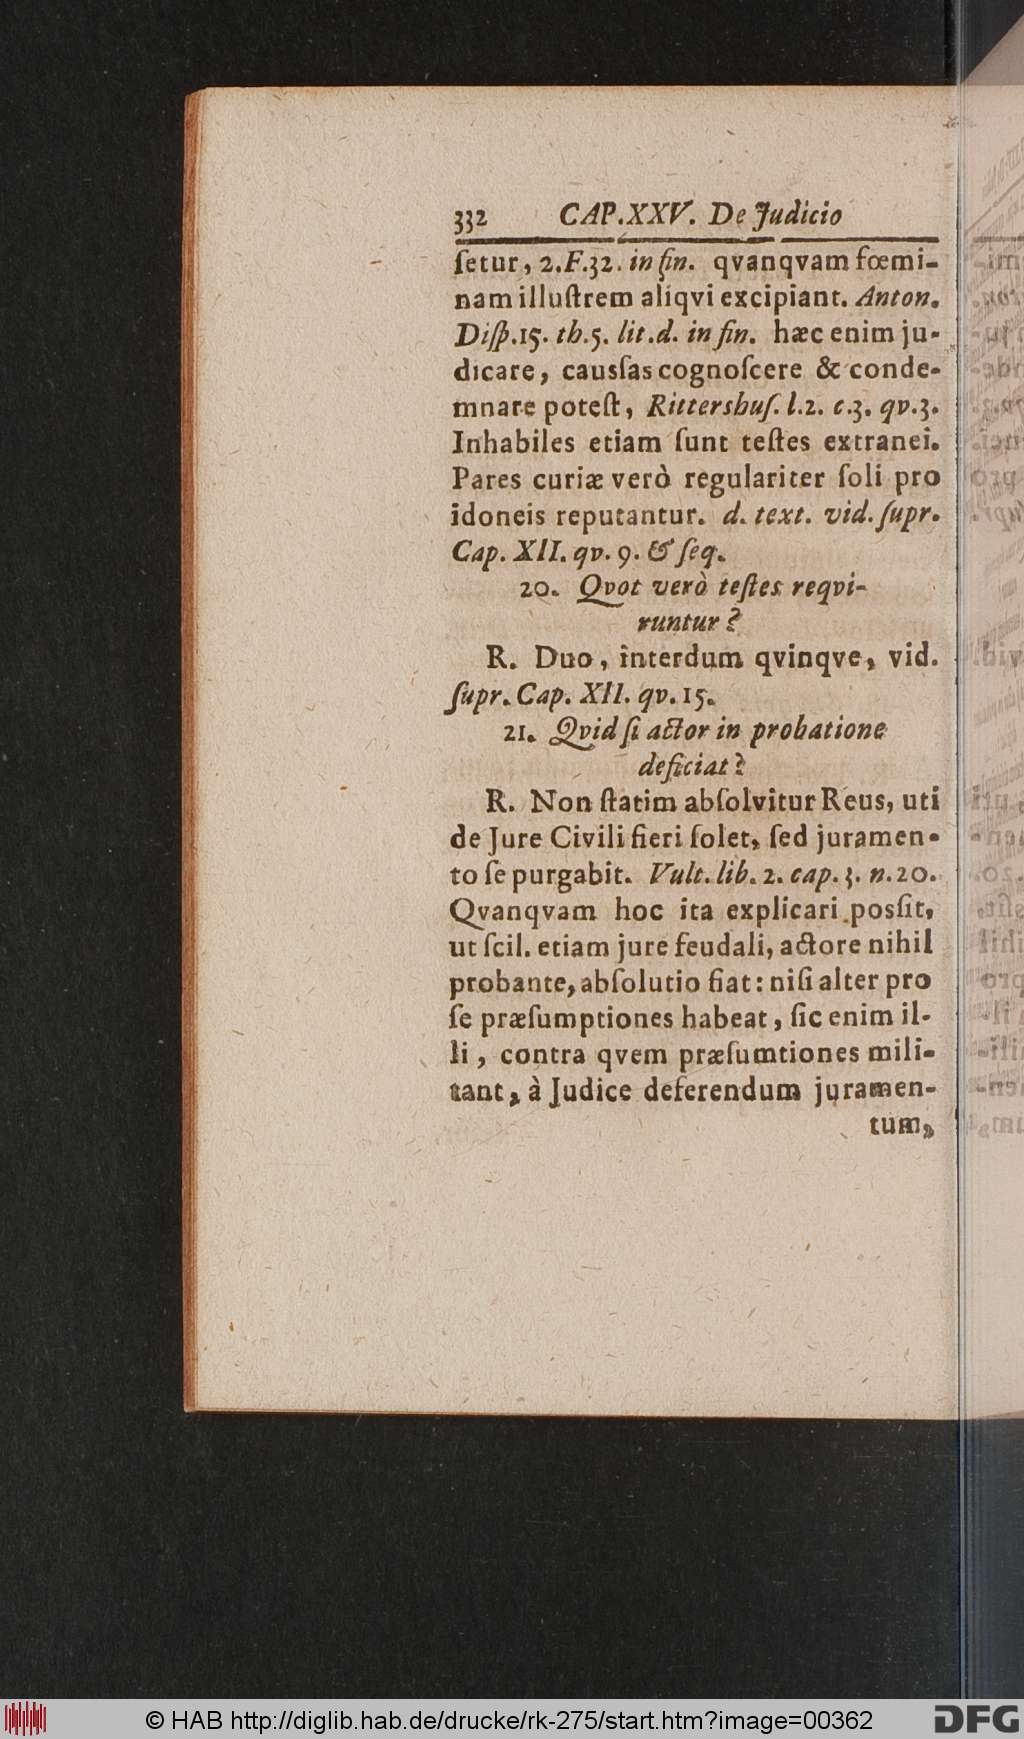 332 CAP.XXV. De Judicio
ſetur, 2.F.32. in fin. qvanqvam fœmi-
nam illuſtrem aliqvi excipiant. Anton.
Diſp.15. th.5. lit.d. in fin. hæc enim ju-
dicare, causſas cognoſcere & conde-
mnare poteſt, Rittershuſ. l.2. c.3. qv.3.
Inhabiles etiam ſunt teſtes extranei.
Pares curiæ verò regulariter ſoli pro
idoneis reputantur. d. text. vid. ſupr.
Cap. XII. qv. 9. & ſeq.
20. Qvot verò teſtes reqvi-
runtur?
R. Duo, interdum qvinqve, vid.
ſupr. Cap. XII. qv. 15.
21. Qvid ſi actor in probatione
deficiat?
R. Non ſtatim abſolvitur Reus, uti
de Jure Civili fieri ſolet, ſed juramen-
to ſe purgabit. Vult. lib. 2. cap. 3. n. 20.
Qvanqvam hoc ita explicari posſit,
ut ſcil. etiam jure feudali, actore nihil
probante, abſolutio fiat: niſi alter pro
ſe præſumptiones habeat, ſic enim il-
li, contra qvem præſumtiones mili-
tant, à Judice deferendum juramen-
tum,
© HAB http://diglib.hab.de/drucke/rk-275/start.htm?image=00362
DFG